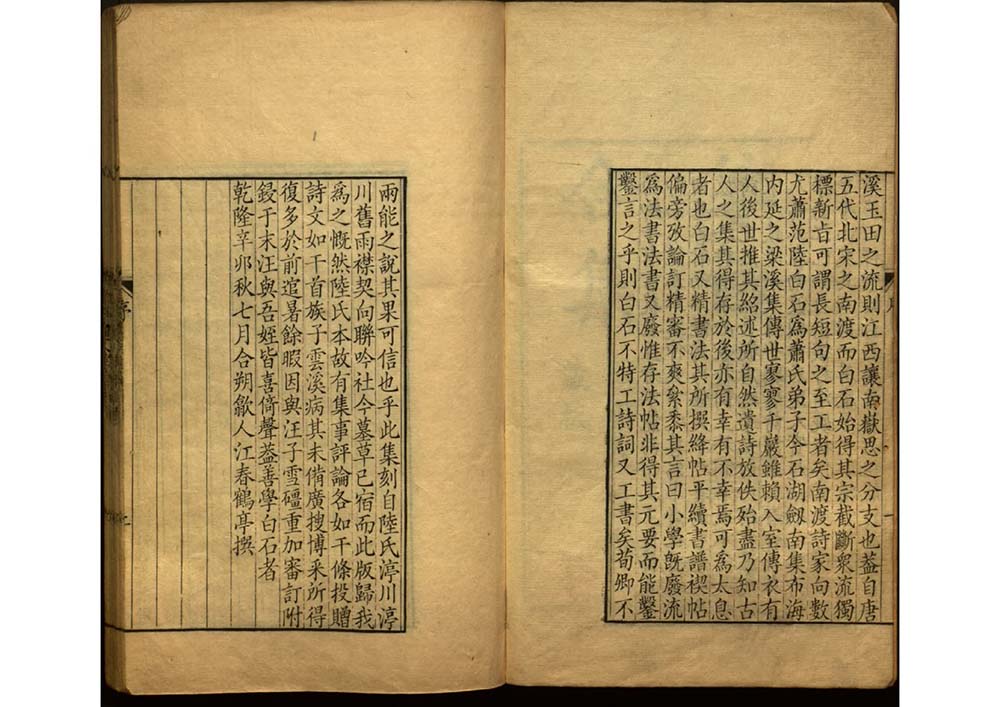 溪玉田之流則江西讓南嶽思之分支也葢自唐
五代北宋之南渡而白石始得其宗截斷衆流獨
標新㫖可謂長短句之至工者矣南渡詩家向數
尤蕭范陸白石爲蕭氏弟子今石湖劒南集布海
内延之梁溪集傳世寥寥千巖雖賴入室傳衣有
人後世推其紹述所自然遺詩放佚殆盡乃知古
人之集其得存於後亦有幸有不幸焉可爲太息
者也白石又精書法其所撰絳帖平續書譜禊帖
偏旁攷論訂精審不爽絫黍其言曰小學旣廢流
爲法書法書又廢惟存法帖非得其元要而能鑿
鑿言之乎則白石不特工詩詞又工書矣荀卿不
兩能之說其果可信也乎此集刻自陸氏渟川渟
川舊雨襟契向聯吟社今墓草已宿而此版歸我
爲之慨然陸氏本故有集事評論各如干條投贈
詩文如干首族子雲溪病其未備廣搜博采所得
復多於前逭暑餘暇因與汪子雪礓重加審訂附
鋟于末汪與吾姪皆喜倚聲葢善學白石者
乾隆辛夘秋七月合朔歙人江春鶴亭撰
序